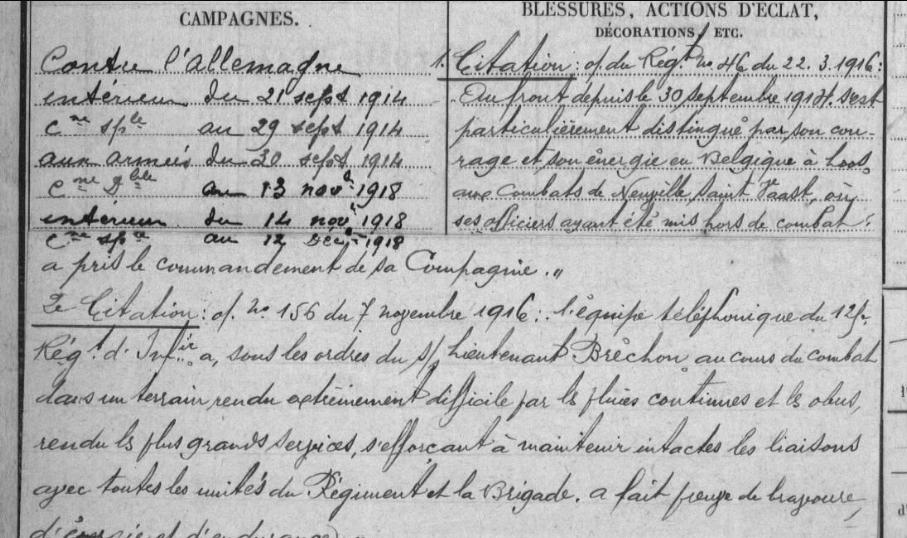 CAMPAGNES.
Contre l'allemagne
intérieur du 21 sept 1914
Cne sple au 29 sept 1914
aux armées du 30 sept 1914
Cne dble au 13 novb 1918
intérieur du 14 novb 1918
Cne sple au 12 Décb 1918
BLESSURES, ACTIONS D'ÉCLAT,
DÉCORATIONS, ETC.
1. Citation: o/. du Régt no 46 du 22.3.1916:
Au front depuis le 30 septembre 1914. s'est
particulièrement distingué par son cou-
rage et son énergie en Belgique à Loos,
aux Combats de Neuville Saint Vaast, où
ses officiers ayant été mis hors de combat
a pris le commandement de sa Compagnie."
2e Citation: o/. no 156 du 7 novembre 1916: l'équipe téléphonique du
Régt d'Infir a, sous les ordres du s/ Lieutenant Bréchon au cours du combat
dans un terrain rendu extrêmement difficile par les pluies continues et les obus,
rendu les plus grands services, s'efforçant à maintenir intactes les liaisons
avec toutes les unités du Régiment et la Brigade. a fait preuve de bravoure,
d'énergie et d'endurance